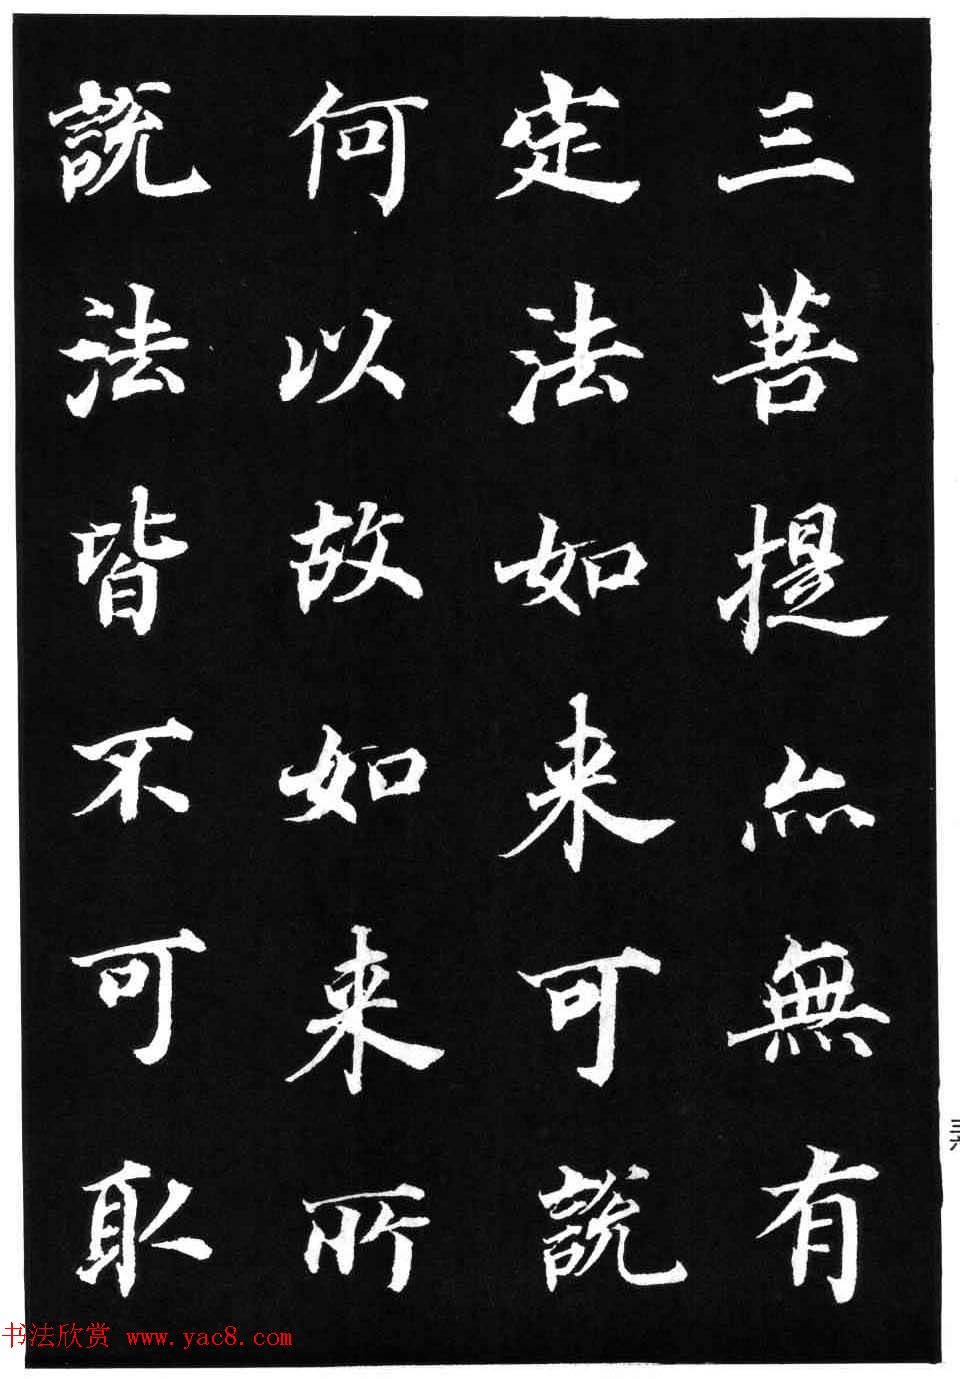 三菩提亦無有
定法如来可說
何以故如来所
說法皆不可取
书法欣赏 www.yac8.com